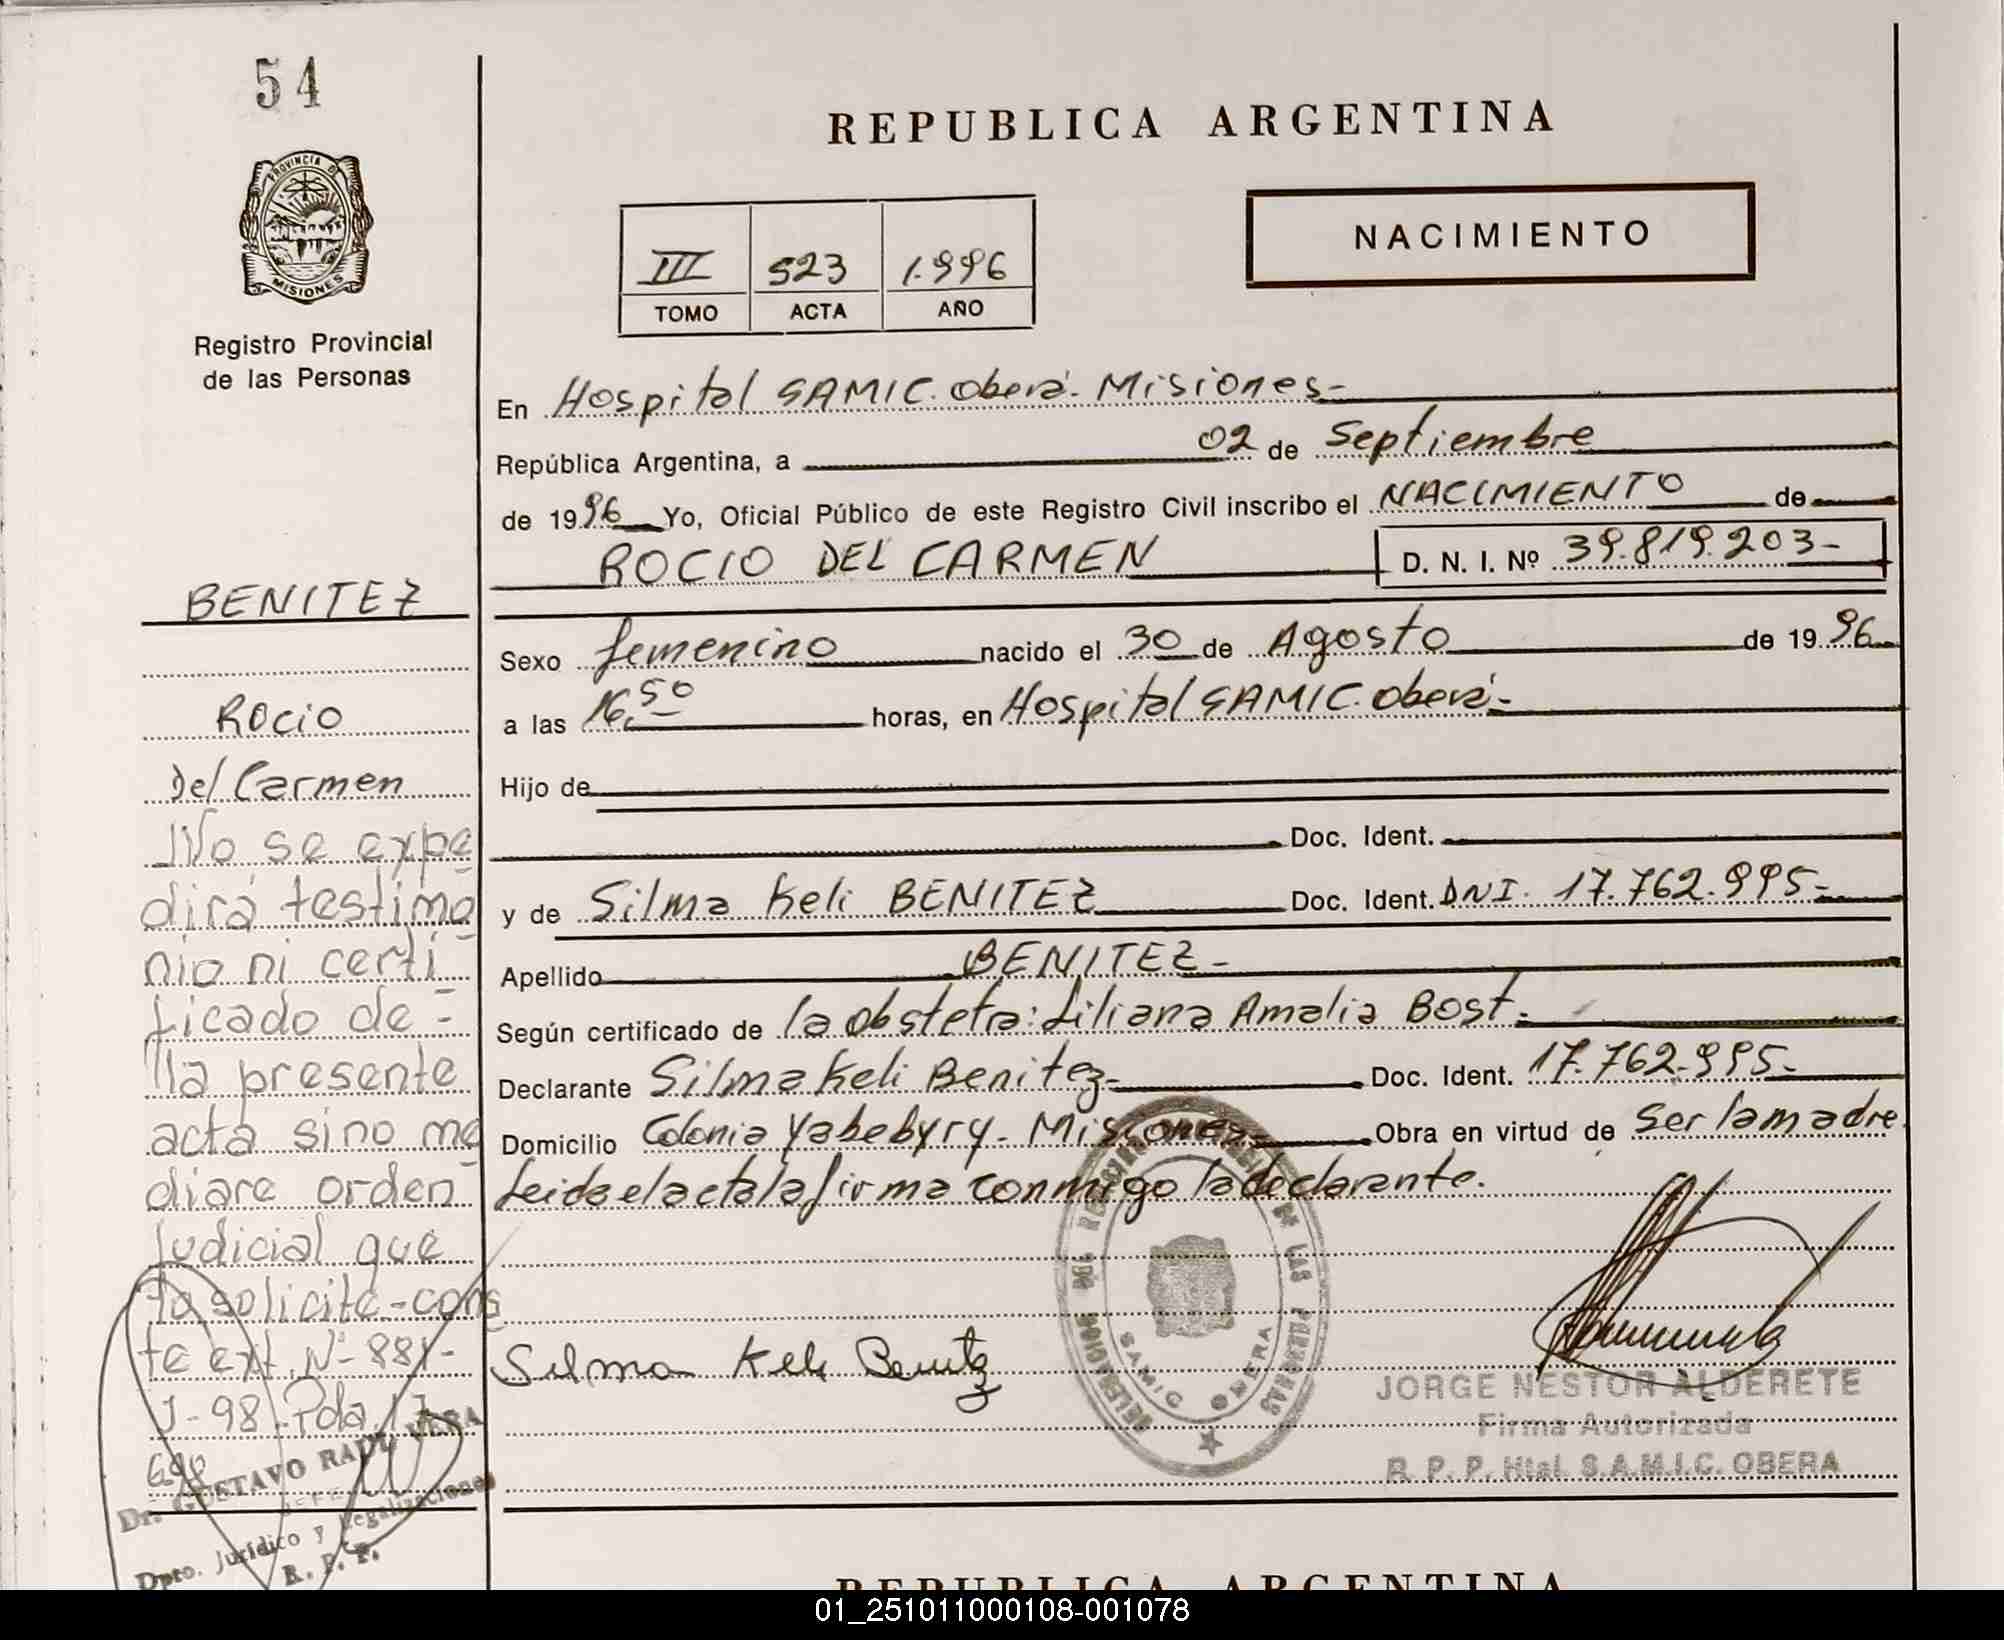 54
REPUBLICA ARGENTINA
PROVINCIA DE
MISIONES
Registro Provincial
de las Personas
NACIMIENTO
III 523 1.996
TOMO ACTA AÑO
En Hospital SAMIC. Oberá. Misiones-
República Argentina, a 02 de Septiembre
de 1996 Yo, Oficial Público de este Registro Civil inscribo el NACIMIENTO de
ROCIO DEL CARMEN D. N. I. Nº 39.819.203-
Sexo femenino nacido el 30 de Agosto de 1996
a las 16,50 horas, en Hospital SAMIC. Oberá-
Hijo de
Doc. Ident.
y de Silma Keli BENITEZ Doc. Ident. DNI. 17.762.995-
Apellido BENITEZ-
Según certificado de la obstetra: Liliana Amalia Bost.
Declarante Silma Keli Benitez- Doc. Ident. 17.762.995-
Domicilio Colonia Yabebyry- Misiones- Obra en virtud de Ser la madre.
Leida el acta la firma conmigo la declarante.
Silma Keli Benitez
DE LAS PERSONAS
SAMIC OBERA
JORGE NESTOR ALDERETE
Firma Autorizada
R. P. P. Htal. S.A.M.I.C. OBERA
BENITEZ
Rocio
Del Carmen
No se expe
dirá testimo
nio ni certi-
ficado de-
la presente
acta sino me
diare orden
judicial que
lo solicite-cons
te ext. Nº 881-
J-98-Pda.17
698
Dr. GUSTAVO RAUL VERA
JEFE
Dpto. Jurídico y Legalizaciones
R. P. P.
REPUBLICA ARGENTINA
01_251011000108-001078